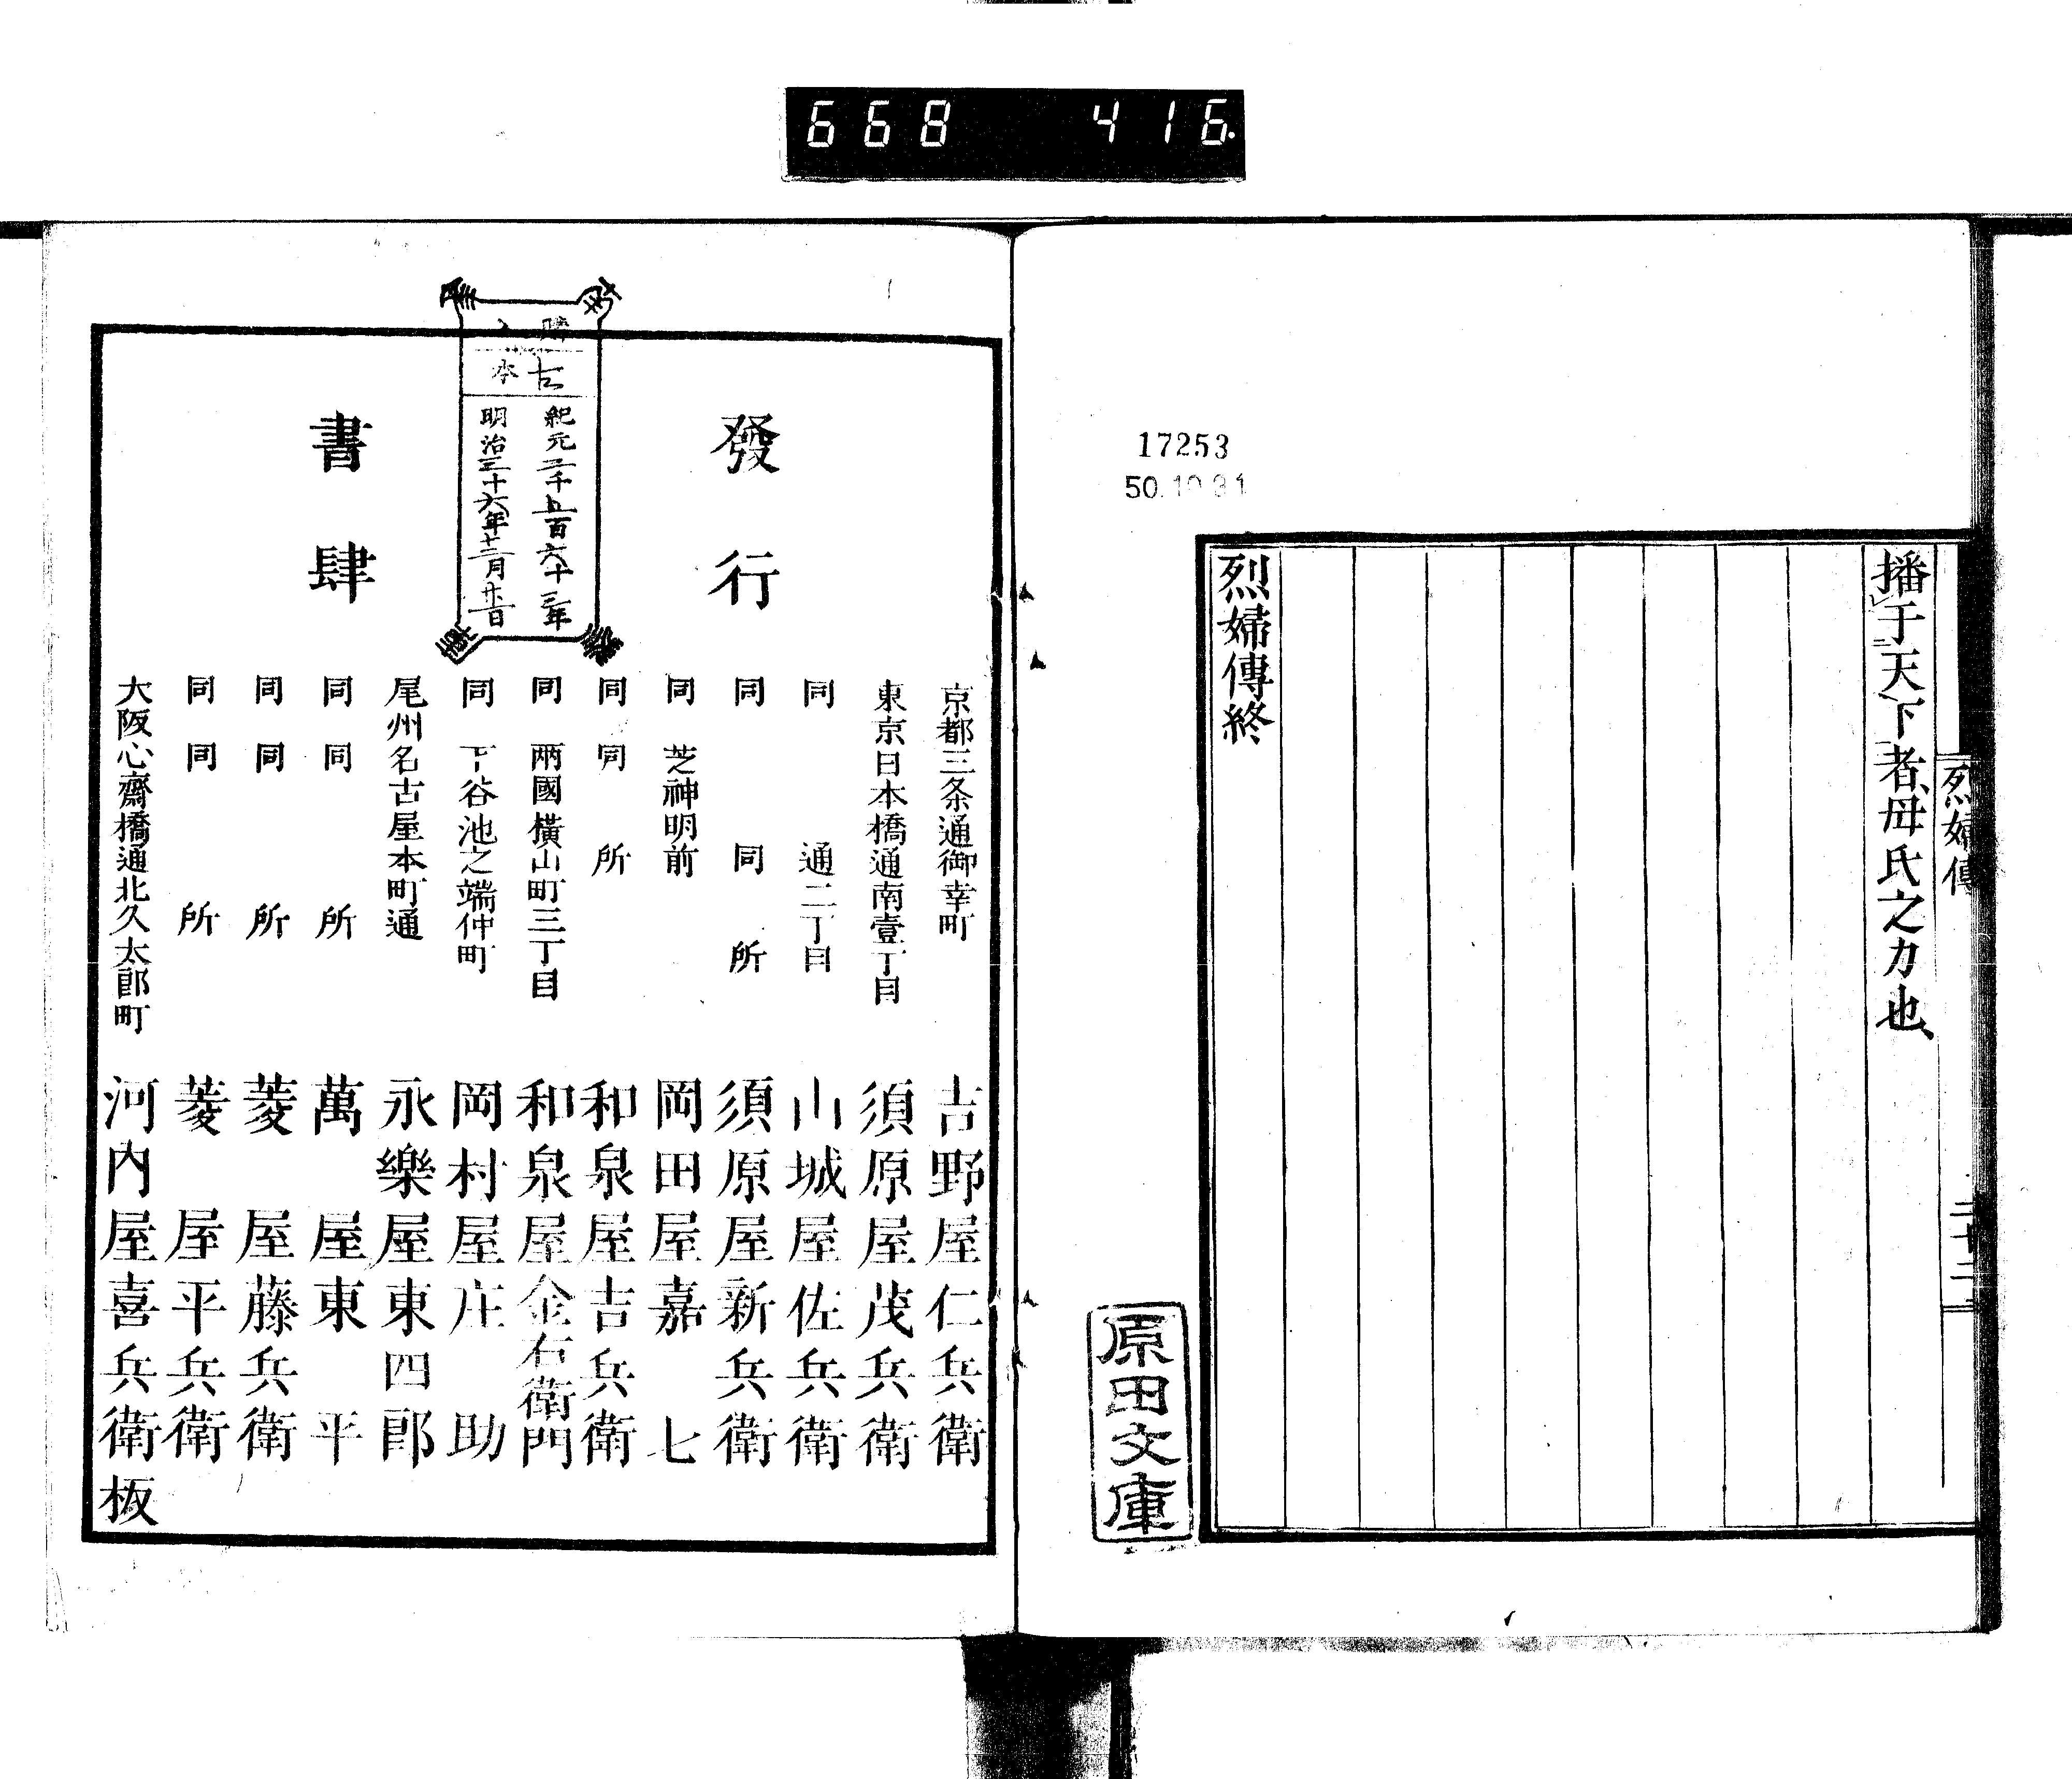 668 416
烈婦傳
二十二
播于天下者、毋氏之力也、
烈婦傳終
17253
50.10.31
原田文庫
發行
書肆
京都三条通御幸町 吉野屋仁兵衛
東京日本橋通南壹丁目 須原屋茂兵衛
同 通二丁目 山城屋佐兵衛
同 同所 須原屋新兵衛
同 芝神明前 岡田屋嘉七
同 同所 和泉屋吉兵衛
同 兩國橫山町三丁目 和泉屋金右衛門
同 下谷池之端仲町 岡村屋庄助
尾州名古屋本町通 永樂屋東四郎
同 同所 萬屋東平
同 同所 菱屋藤兵衛
同 同所 菱屋平兵衛
大阪心齋橋通北久太郎町 河内屋喜兵衛板
古本
紀元二千五百六十三年
明治三十六年十二月廿一日